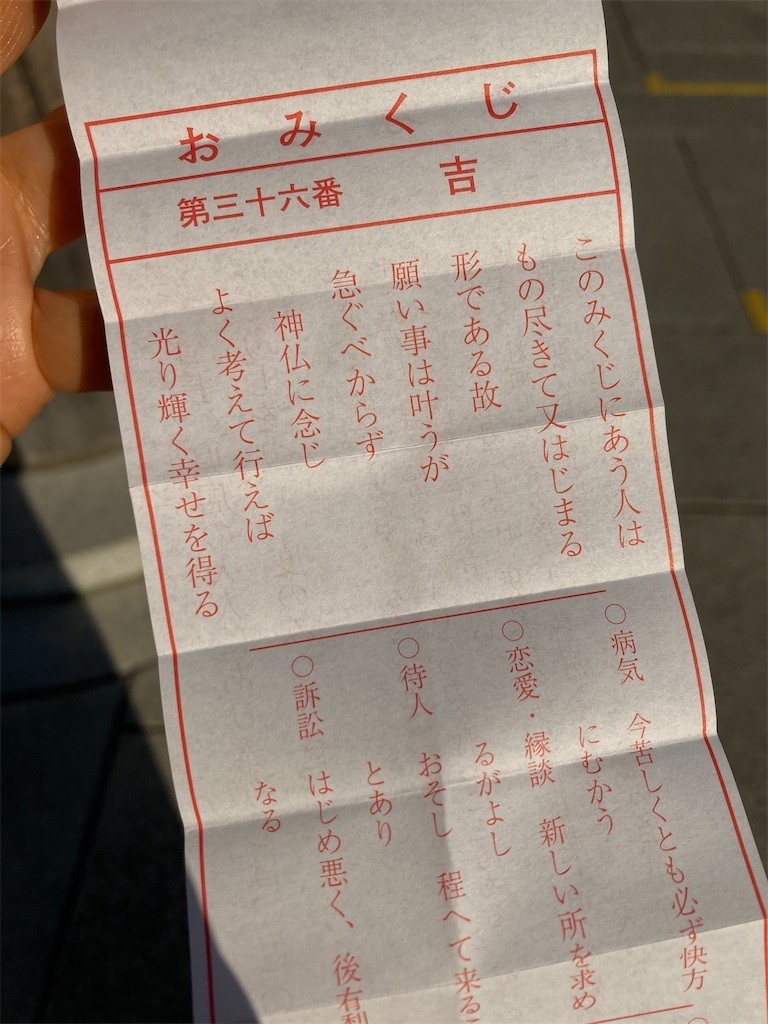 おみくじ
第三十六番 吉
このみくじにあう人は
もの尽きて又はじまる
形である故
願い事は叶うが
急ぐべからず
神仏に念じ
よく考えて行えば
光り輝く幸せを得る
○病気 今苦しくとも必ず快方
にむかう
○恋愛・縁談 新しい所を求め
るがよし
○待人 おそし 程へて来るこ
とあり
○訴訟 はじめ悪く、後有利
なる